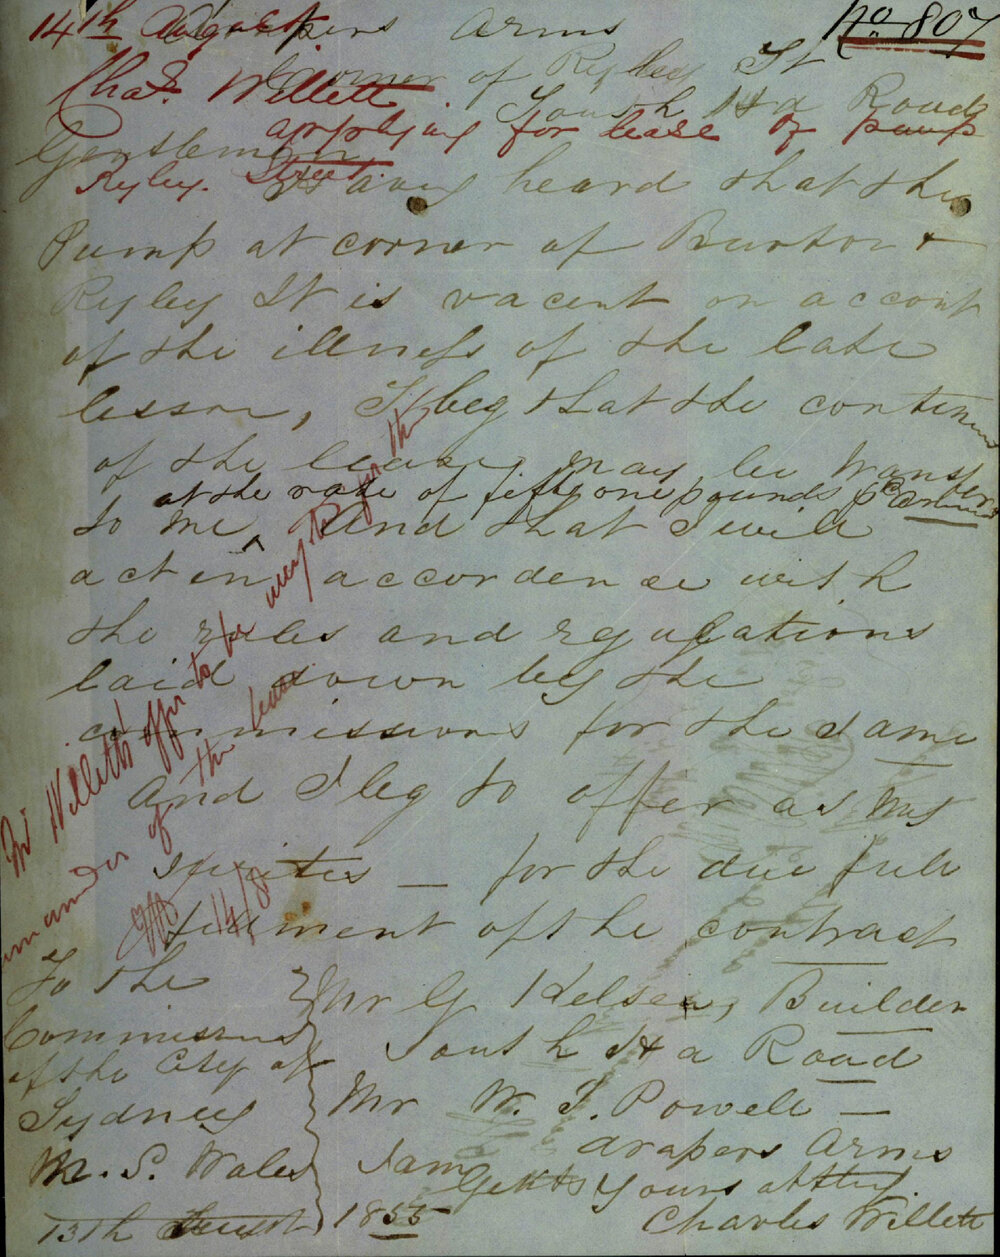 No 807
14th August
Drapers Arms
Corner of Ryley St
South Hd Road
Chas. Willett
applying for lease of pump
Ryley Street.
Gentlemen
Having heard that the
Pump at corner of Burton &
Ryley St is vacent on account
of the illness of the late
lessor, I beg that the
of the lease may be
at the rate of fifty one pounds
to me, And that I will
act in accordence with
the rules and regulations
laid down by the
commissions for the same
And I beg to offer as my
for the due full
fillment of the contract
Mr G Kelsey, Builder
South Hd Road
Mr W. J. Powell —
drapers Arms
I am
Gents Yours
Charles Willett
To the
Commissions
of the City of
Sydney
N. S. Wales
13th August 1855
Mr Willett's offer to be accepted for the
remainder of the lease
14/8